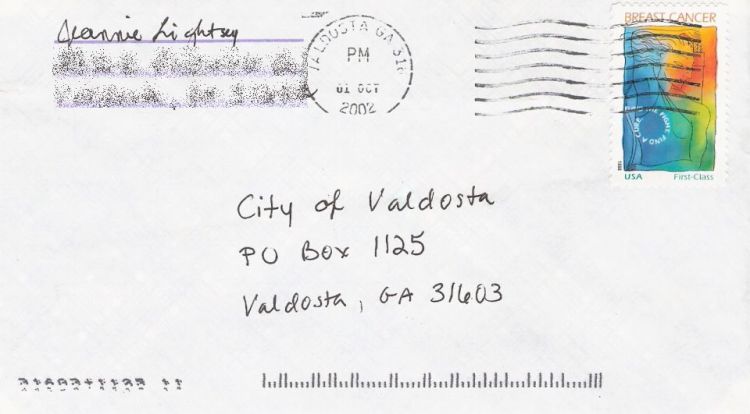 Jeannie Lightsey
VALDOSTA GA 316
PM
01 OCT
2002
BREAST CANCER
FUND THE FIGHT. FIND A CURE
1998
USA First-Class
City of Valdosta
PO Box 1125
Valdosta, GA 31603